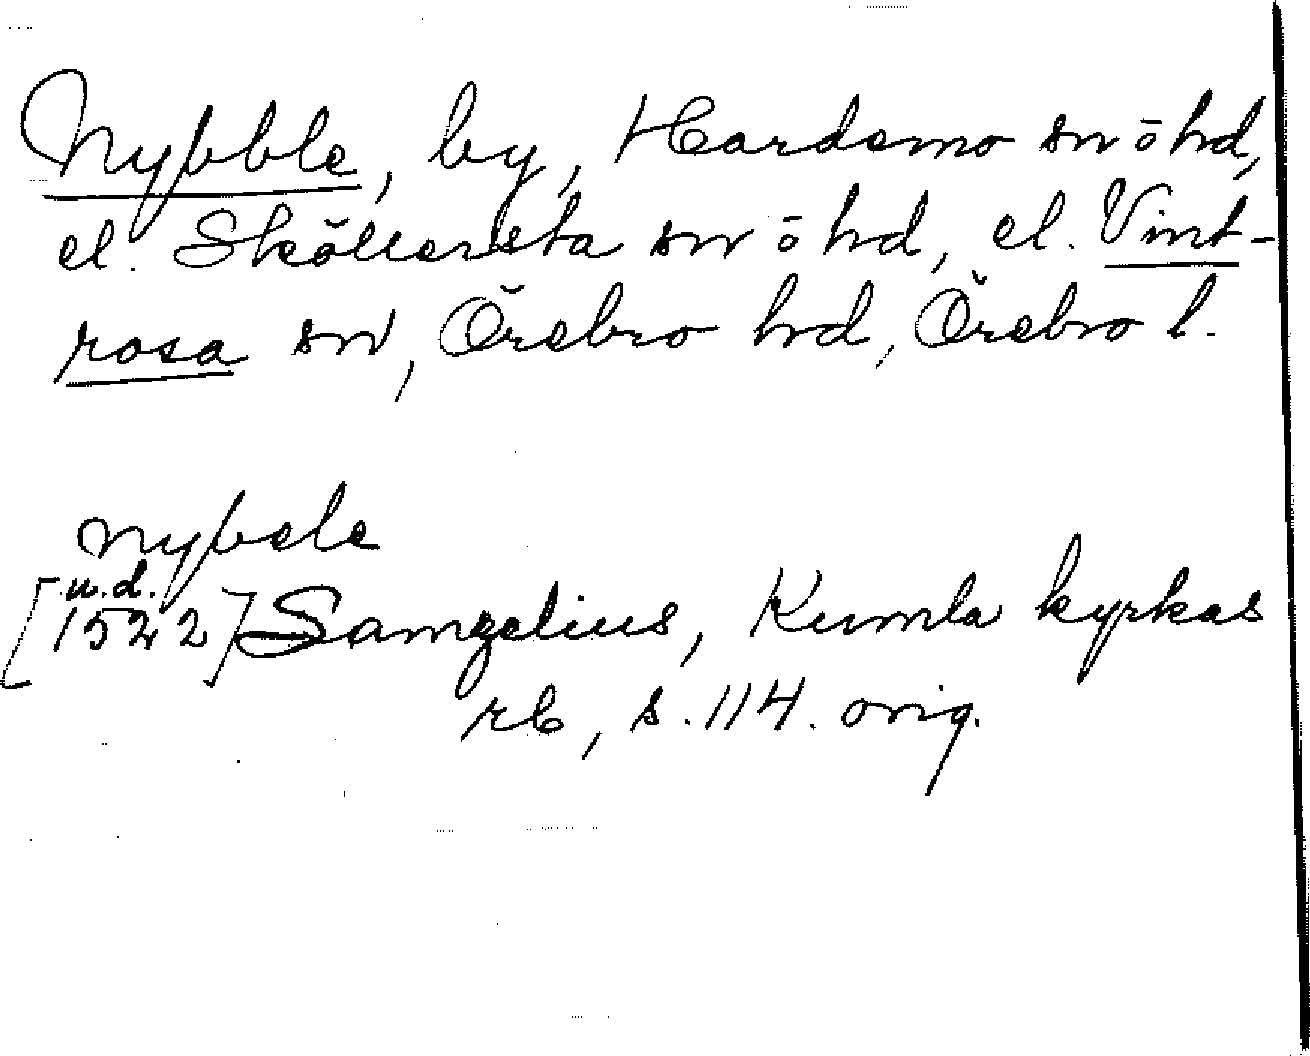 Nybble, by, Hardemo sn ō hd,
el. Sköllersta sn ō hd, el. Vint-
rosa sn, Örebro hd, Örebro l.
nybele
u.d.
[1522] Samzelius, Kumla kyrkas
rb, s. 114. orig.